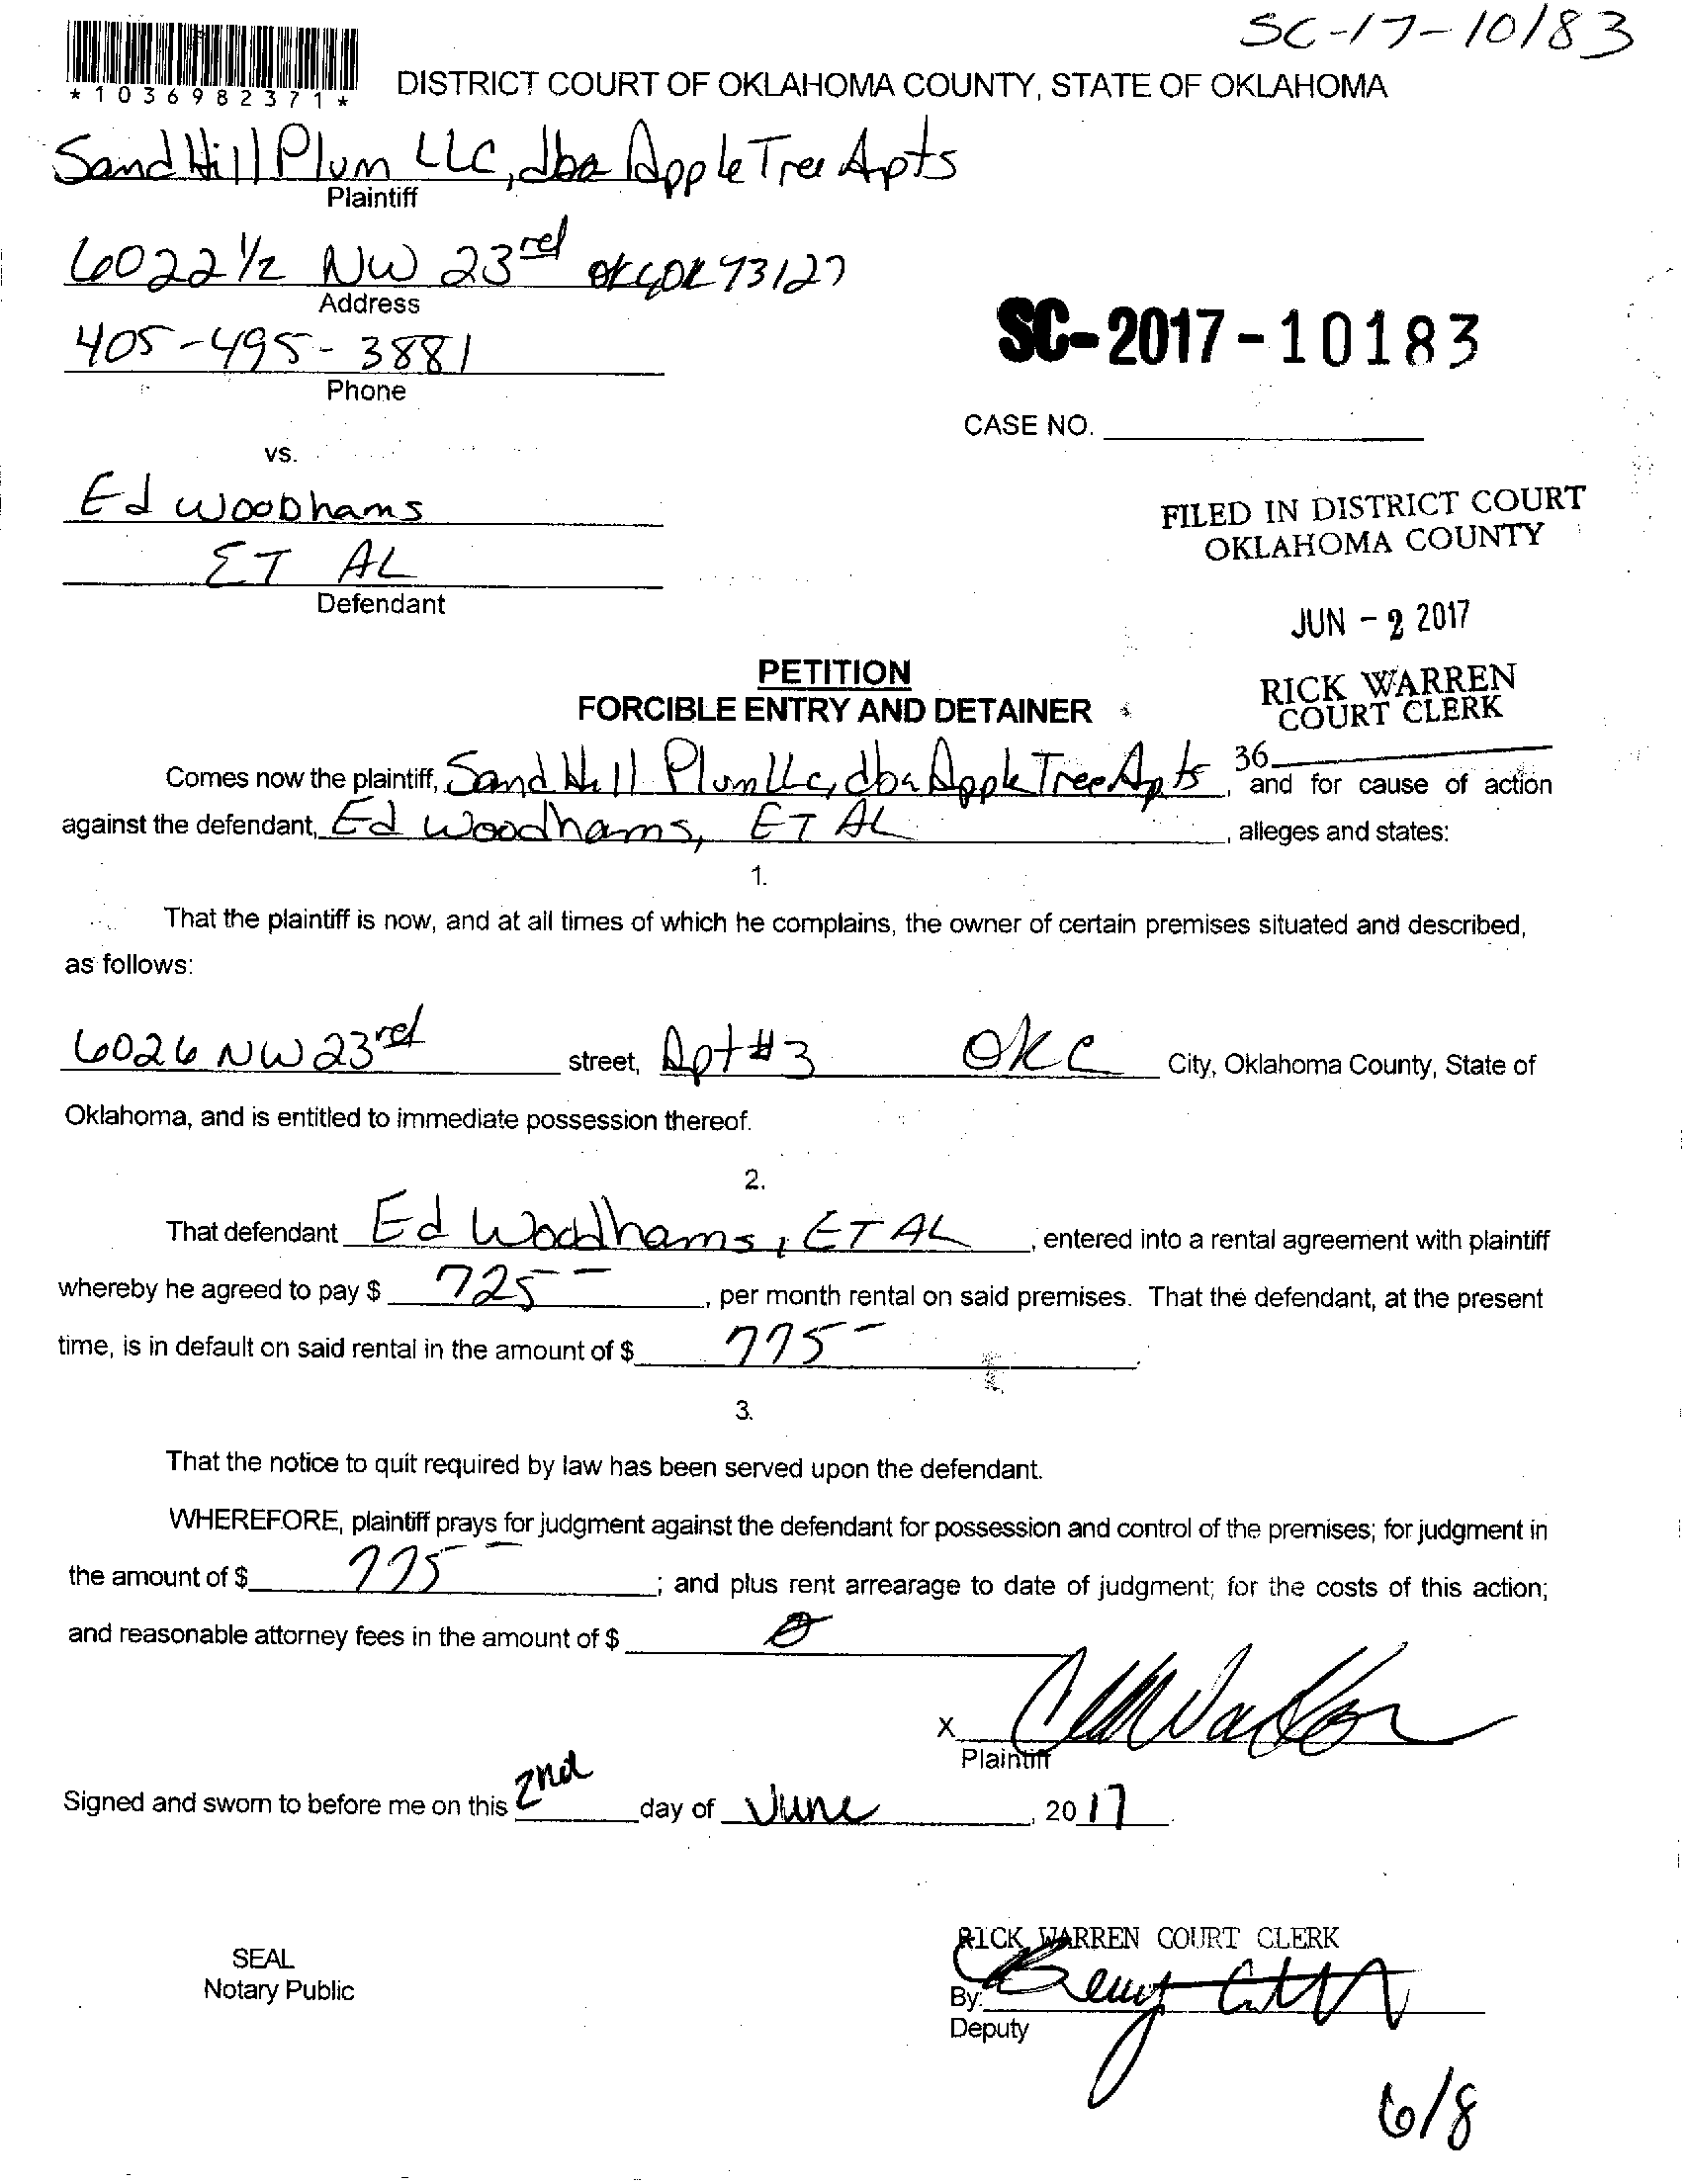 SC-17-10183
*1036982371*
DISTRICT COURT OF OKLAHOMA COUNTY, STATE OF OKLAHOMA
Sand Hill Plum LLC, dba Apple Tree Apts
Plaintiff
6022 1/2 NW 23rd OKC OK 73127
Address
405-495-3881
Phone
SC-2017-10183
CASE NO.
vs.
Ed WooDhams
ET AL
Defendant
FILED IN DISTRICT COURT
OKLAHOMA COUNTY
JUN - 2 2017
RICK WARREN
COURT CLERK
36
PETITION
FORCIBLE ENTRY AND DETAINER
Comes now the plaintiff, Sand Hill Plum LLC, dba Apple Tree Apts, and for cause of action
against the defendant, Ed Woodhams, ET AL, alleges and states:
1.
That the plaintiff is now, and at all times of which he complains, the owner of certain premises situated and described,
as follows:
6026 NW 23rd street, Apt #3 OKC City, Oklahoma County, State of
Oklahoma, and is entitled to immediate possession thereof.
2.
That defendant Ed Woodhams, ET AL, entered into a rental agreement with plaintiff
whereby he agreed to pay $ 725--, per month rental on said premises. That the defendant, at the present
time, is in default on said rental in the amount of $ 775-.
3.
That the notice to quit required by law has been served upon the defendant.
WHEREFORE, plaintiff prays for judgment against the defendant for possession and control of the premises; for judgment in
the amount of $ 775-; and plus rent arrearage to date of judgment; for the costs of this action;
and reasonable attorney fees in the amount of $ 0
X
Plaintiff
Signed and sworn to before me on this 2nd day of June, 2017
SEAL
Notary Public
RICK WARREN COURT CLERK
By:
Deputy
6/8